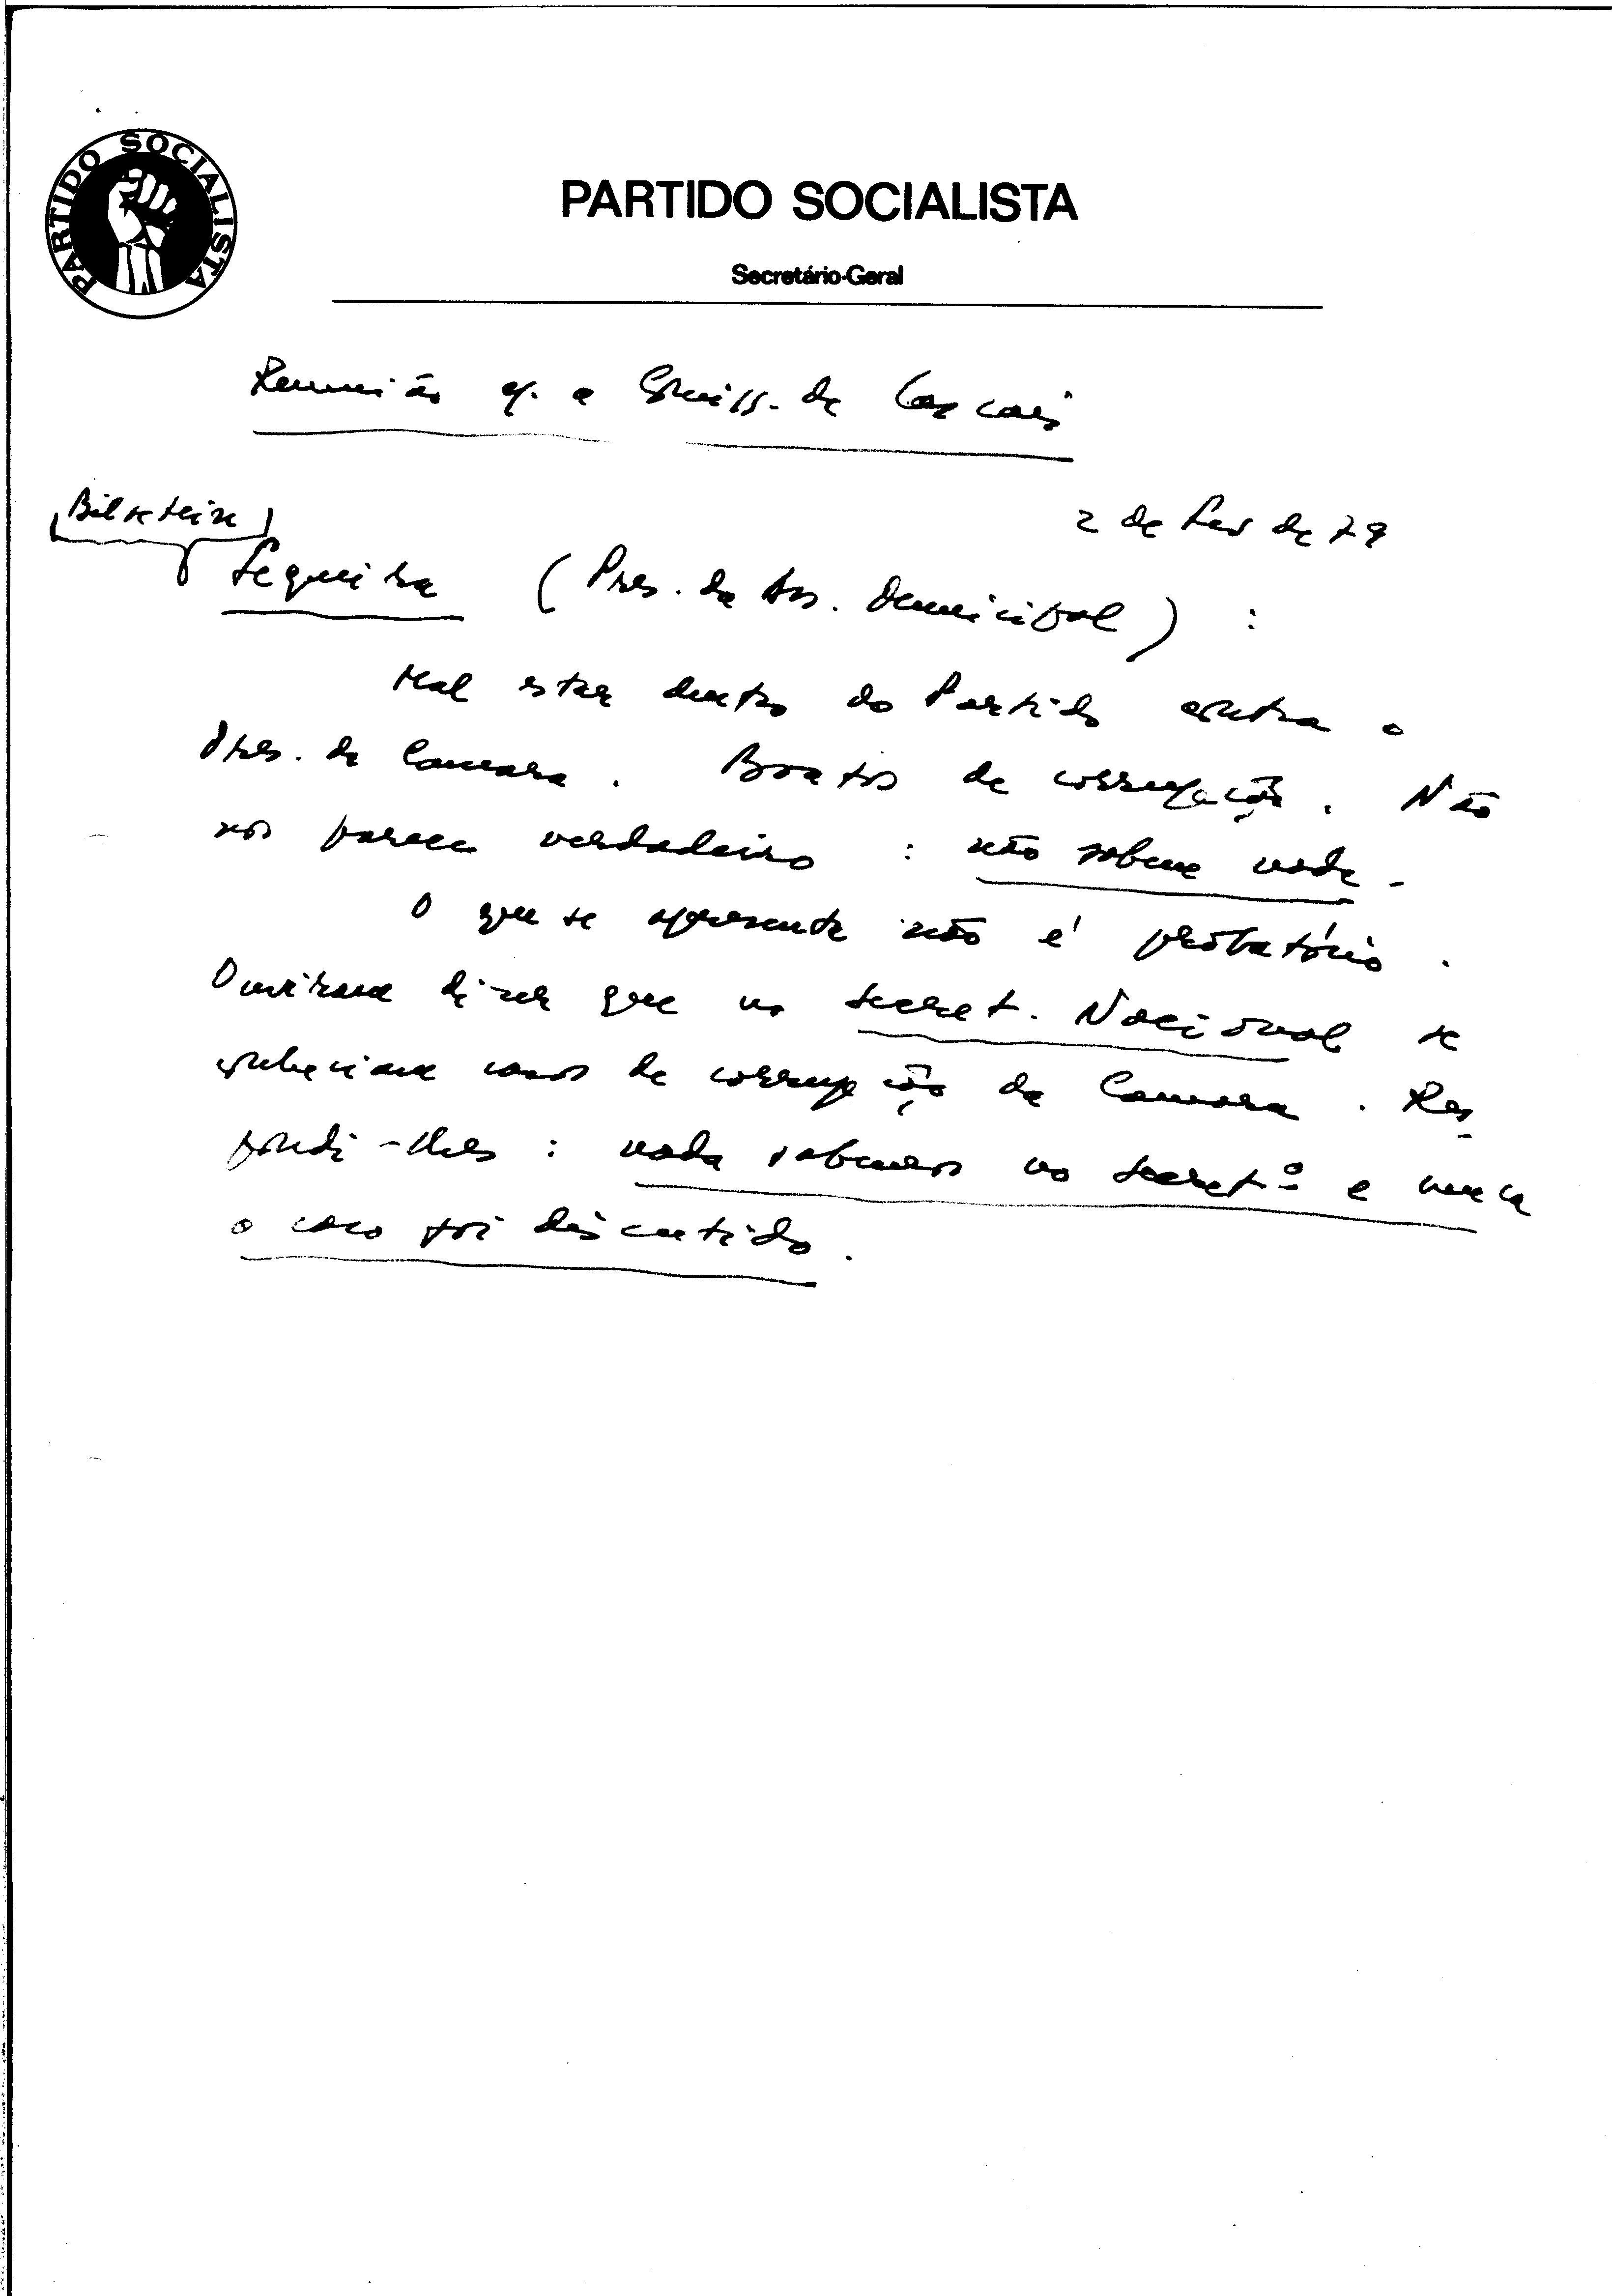 PARTIDO SOCIALISTA
PARTIDO SOCIALISTA
Secretário-Geral
Reunião c/. a Comiss. de Cascais
2 de Fev de 79
Sequeira (Pres. da Ass. Municipal) :
Mal estar dentro do Partido contra o
Pres. da Camara. Boatos de corrupção. Não
nos parece verdadeiro : não sabem nada.
O que se apresenta não é probatório.
Ouviram dizer que no Secret. Nacional se
conheciam casos de corrupção da Camara. Res-
pondi-lhes : nada sabemos no Secretº e nunca
o caso foi discutido.